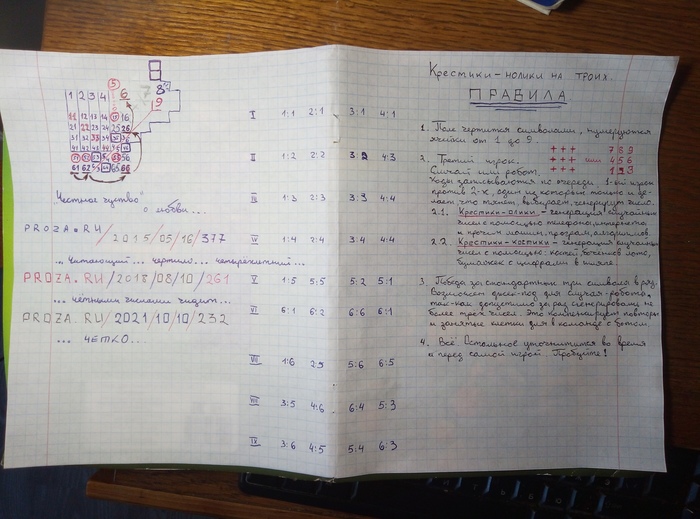 5
1 2 3 4 6 7 8 9
11 12 13 14 15 16
21 22 23 24 25 26
31 32 33 34 35 36
41 42 43 44 45 46
51 52 53 54 55 56
61 62 63 64 65 66
"Честное чувство"
о любви...
PROZA.RU/2015/05/16/377
... читающий... чертит... четырежитний...
PROZA.RU/2018/08/10/261
... чётными знаками чадит...
PROZA.RU/2021/10/10/232
... четко...
I 1:1 2:1 3:1 4:1
II 1:2 2:2 3:2 4:3
III 1:3 2:3 3:3 4:4
IV 1:4 2:4 3:4 4:4
V 1:5 5:5 5:2 5:1
VI 6:1 6:2 6:6 6:1
VII 1:6 2:5 5:6 6:5
VIII 3:5 4:6 6:4 5:3
IX 3:6 4:5 5:4 6:3
Крестики-нолики на троих.
ПРАВИЛА
1. Поле чертится символами, нумеруются
ячейки от 1 до 9.
+++ 7 8 9
2. Третий игрок. +++ или 4 5 6
Случай или робот. +++ 1 2 3
Ходы записываются по очереди. 1-ый игрок
против 2-х, один из которых только и де-
лает что тянет, выбирает, генерирует число.
2.1. Крестики-олики - генерация случайных
чисел с помощью телефона, интернета
и прочих машин, программ, алгоритмов.
2.2. Крестики-костики - генерация случайных
чисел с помощью костей, бочонков лото,
бумажек с цифрами в шляпе.
3. Победа за стандартные три символа в ряд.
Возможен для случая-робота
так-как допустимо за раз сгенерировать не
более трёх чисел. Это компенсирует повторы
и занятые клетки для в команде с ботом.
4. Всё! Остальное уточнится во время
и перед самой игрой. Пробуйте!